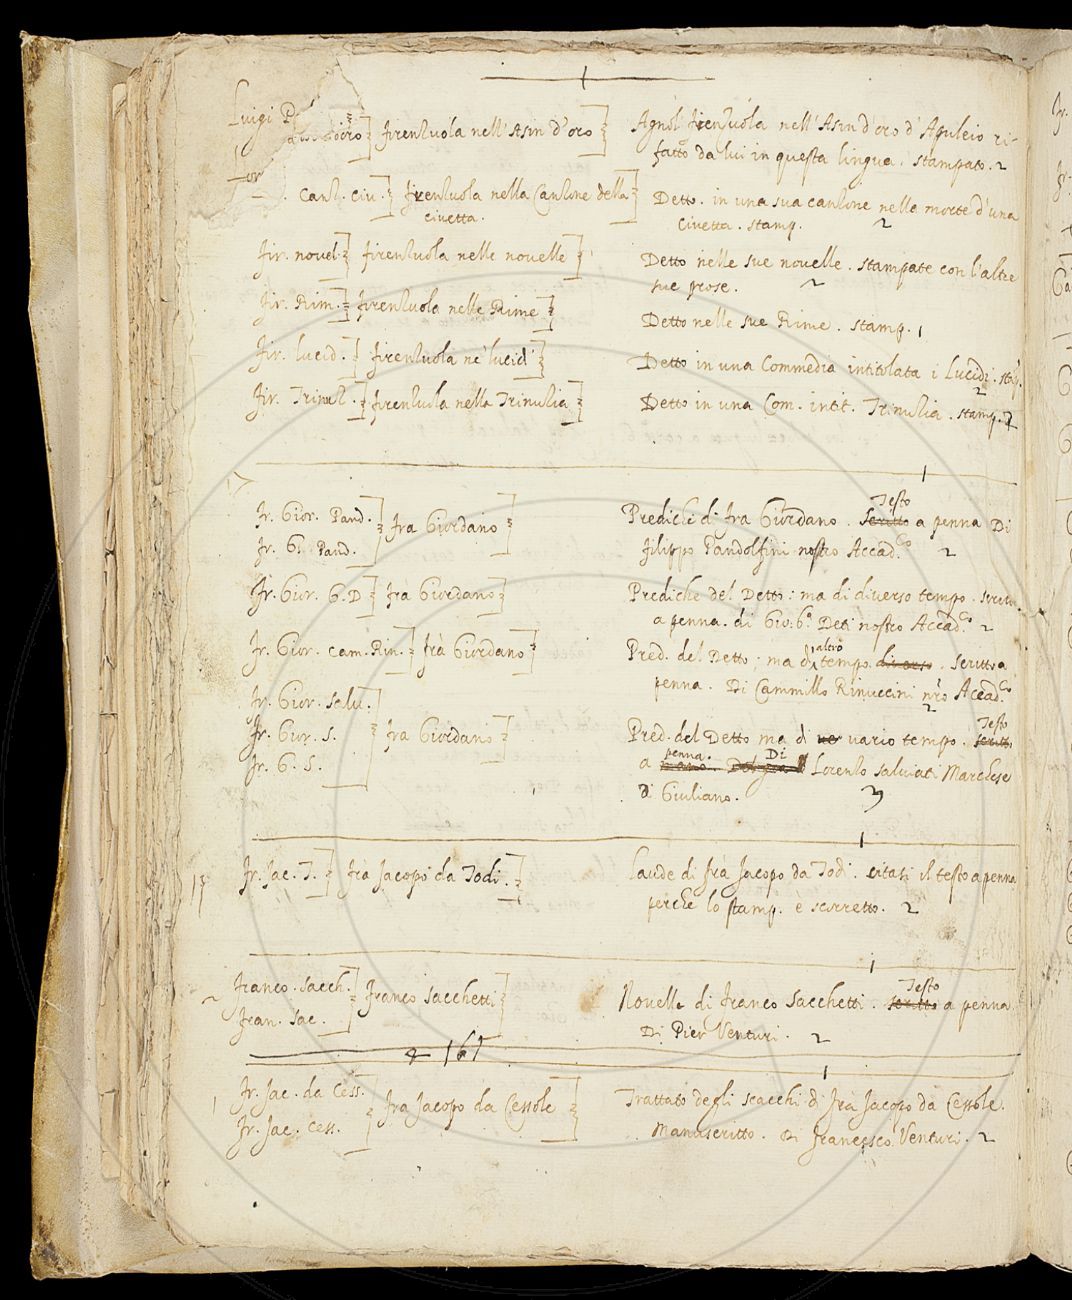 Luigi P
d'oro] Firenzuola nell'Asin d'oro] Agnol Firenzuola nell'Asin d'oro d'Apuleio ri-
fatto da lui in questa lingua. stampato. 2
Canz. Civ.] Firenzuola nella Canzone della Detto. in una sua canzone nella morte d'una
civetta. Civetta. stamp. 2
Fir. novel.] Firenzuola nelle novelle] Detto nelle sue novelle. stampate con l'altre
sue prose. 2
Fir. Rim.] Firenzuola nelle Rime] Detto nelle sue Rime. stamp. 1
Fir. lucid.] Firenzuola ne' lucid'] Detto in una Commedia intitolata i Lucidi. stāp.
2
Fir. Trinuz.] Firenzuola nella Trinuzia] Detto in una Com. intit. Trinuzia. stamp. 2
17
Testo
Fr. Gior. Pand.] Fra Giordano] Prediche di Fra Giordano. scritto a penna Di
Fr. G. Pand. Filippo Pandolfini nostro Accad.co 2
Fr. Gior. G. D] frà Giordano] Prediche del Detto: ma di diverso tempo. scritte
a penna. di Gio: b.a Deti nostro Accad.co 2
altro
Fr. Gior. Cam. Rin.] Frà Giordano] Pred. del Detto: ma di tempo diverso. scritto a
penna. Di Cammillo Rinuccini nr̃o Accad.co
2
Fr. Gior. Salv.
Testo
Fr. Gior. S.] fra Giordano] Pred. del Detto ma di ver vario tempo. scritto
penna. Di
Fr. G. S. a mano. Lorenzo Salviati Marchese
di Giuliano. 3
Fr. Jac. T.] Frà Jacopo da Todi.] Laude di Frà Jacopo da Todi. citasi il testo a penna
perche lo stamp. e scorretto. 2
Testo
Franco. Sacch.] Franco Sacchetti] Novelle di Franco Sacchetti. scritto a penna.
Fran. Sac. Di Pier Venturi. 2
161
Fr. Jac. da Cess. Fra Jacopo da Cessole] Trattato degli scacchi di Frà Jacopo da Cessole.
Fr. Jac. Cess. Manuscritto. Di Francesco Venturi. 2